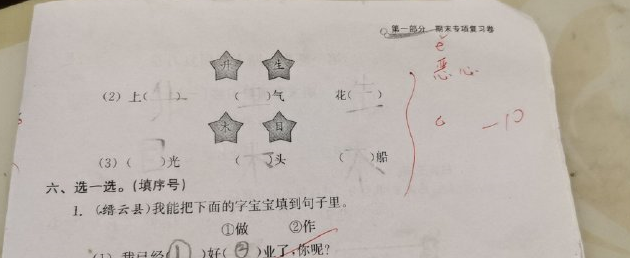 第一部分 期末专项复习卷
è
恶心
升 生
(2) 上( ) ( )气 花( )
一口
木 目
(3) ( )光 ( )头 ( )船
六、选一选。(填序号)
1. (缙云县)我能把下面的字宝宝填到句子里。
①做 ②作
(1) 我已经(①)好(②)业了,你呢?